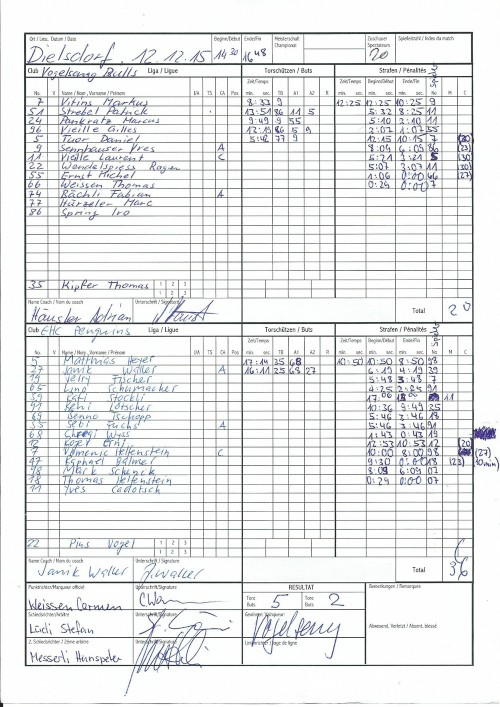 Ort / Lieu, Datum / Date Beginn/Début Ende/Fin Meisterschaft Championnat Zuschauer Spectateurs Spielleitzahl / Index du match
Dielsdorf, 12.12.15 14 30 16 48 20
Club Vogelsang Bulls Liga / Ligue Torschützen / Buts Strafen / Pénalités
No. V Name / Nom, Vorname / Prénom I/A TS CA Pos Zeit/Temps min. sec. TB A1 A2 R Zeit/Temps min. sec. Beginn/Début min. sec. Ende/Fin min. sec. No M C
7 Vitins Markus 8:33 9 12:25 12:25 10:25 9
51 Strebel Patrick 13:51 86 11 5 5:32 8:25 11
24 Pankratz Marcus 9:49 9 55 5:10 3:10 11
96 Vieille Gilles 12:19 86 5 9 2:07 1:07 55
5 Tuor Daniel 5:42 77 9 12:15 10:15 7 (20)
9 Sennhauser Yves A 8:09 6:09 86 (23)
11 Vieille Laurent C 5:21 3:21 5 (30)
22 Wandelspress Ragen 5:07 3:07 11 (30)
55 Ernst Michel 1:06 0:00 66 (27)
66 Weissen Thomas 0:29 0:00 7
74 Bächli Fabian A
77 Hürzeler Marc
86 Spring Iro
35 Kipfer Thomas 1 2 3
Name Coach / Nom du coach Unterschrift / Signature
Häusler Adrian Total 20
Club EHC Penguins Liga / Ligue Torschützen / Buts Strafen / Pénalités
No. V Name / Nom, Vorname / Prénom I/A TS CA Pos Zeit/Temps min. sec. TB A1 A2 R Zeit/Temps min. sec. Beginn/Début min. sec. Ende/Fin min. sec. No M C
5 Matthias Heyer 17:14 25 68 10:50 10:50 8:50 98
27 Janik Walker A 16:11 25 68 27 6:19 4:19 39
19 Jerry Fischer 5:48 3:48 7
65 Lino Schumacher 4:25 2:25 91
39 Kati Stöckli 17:06 11
91 Beni Lötscher 10:36 9:49 25
69 Benno Tschopp 5:46 3:46 18
35 Sebi Fuchs A 5:46 3:46 91
68 Chrigi Wyss 1:43 0:43 19
12 12:53 10:53 12 (20)
7 Domenic Helfenstein C 10:00 8:00 98 (27)
47 Raphael Balmer 9:30 18 (23) 10min)
98 Mark Schenck 8:09 6:09 07
18 Thomas Helfenstein 0:29 0:00 07
11 Yves Cadotsch
22 Pius Vogel 1 2 3
Name Coach / Nom du coach Unterschrift / Signature
Janik Walker J. Walker Total 36
Punktrichter/Marqueur officiel Unterschrift/Signature RESULTAT Bemerkungen / Remarques
Weissen Carmen Tore Buts 5 Tore Buts 2
Schiedsrichter/Arbitre Unterschrift/Signature
Lüdi Stefan Abwesend, Verletzt / Absent, blessé
2. Schiedsrichter / 2ème arbitre Unterschrift/Signature
Messerli Hanspeter